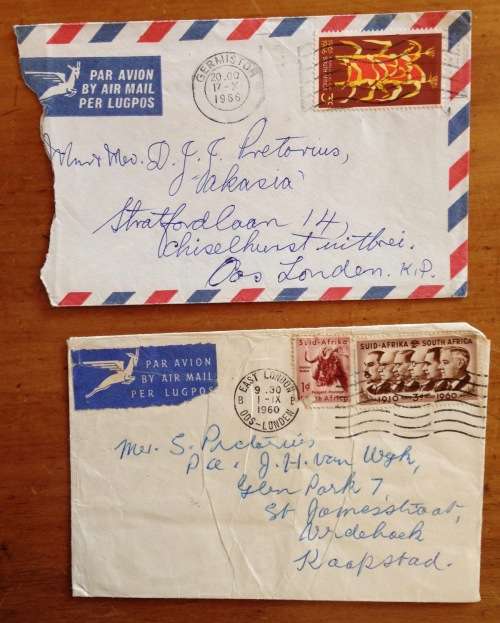 PAR AVION
BY AIR MAIL
PER LUGPOS
GERMISTON
20.00
17-X
1966
Mnr & Mev. D. J. J. Pretorius,
'Akasia'
Stratfordlaan 14,
Chiselhurst uitbrei.
Oos Londen. K.P.
PAR AVION
BY AIR MAIL
PER LUGPOS
EAST LONDON
B 9.30 P
1-IX
1960
OOS-LONDEN
Suid-Afrika
1d
SUID-AFRIKA SOUTH AFRICA
1910 3d 1960
Mev. S. Pretorius
P/a. J. H. van Wyk,
Glen Park 7,
St Jamesstraat,
Vredehoek
Kaapstad.